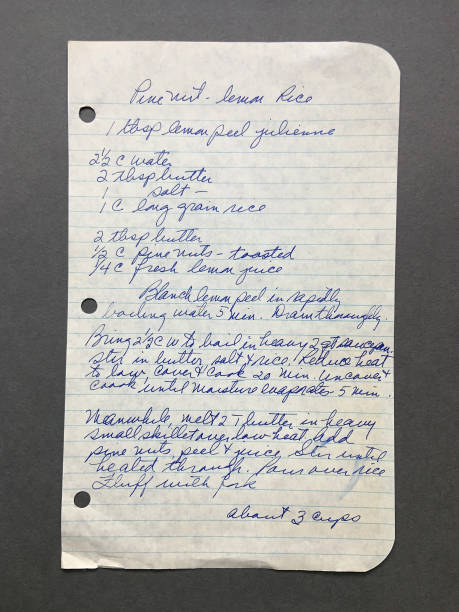 Pine nut - lemon Rice
1 tbsp lemon peel julienne
2½ C water
2 tbsp butter
1 salt -
1 C long grain rice
2 tbsp butter
½ C pine nuts - toasted
¼ C fresh lemon juice
Blanch lemon peel in rapidly
boiling water 5 min. Drain thoroughly.
Bring 2½ C W to boil in heavy 2 qt saucepan.
Stir in butter, salt & rice. Reduce heat
to low cover & cook 20 min. Uncover &
coook until moisture evaporates 5 min.
Meanwhile melt 2 T butter in heavy
small skillet over low heat, add
pine nuts, peel & juice. Stir until
heated through. Pour over rice
Fluff with fork
about 3 cups